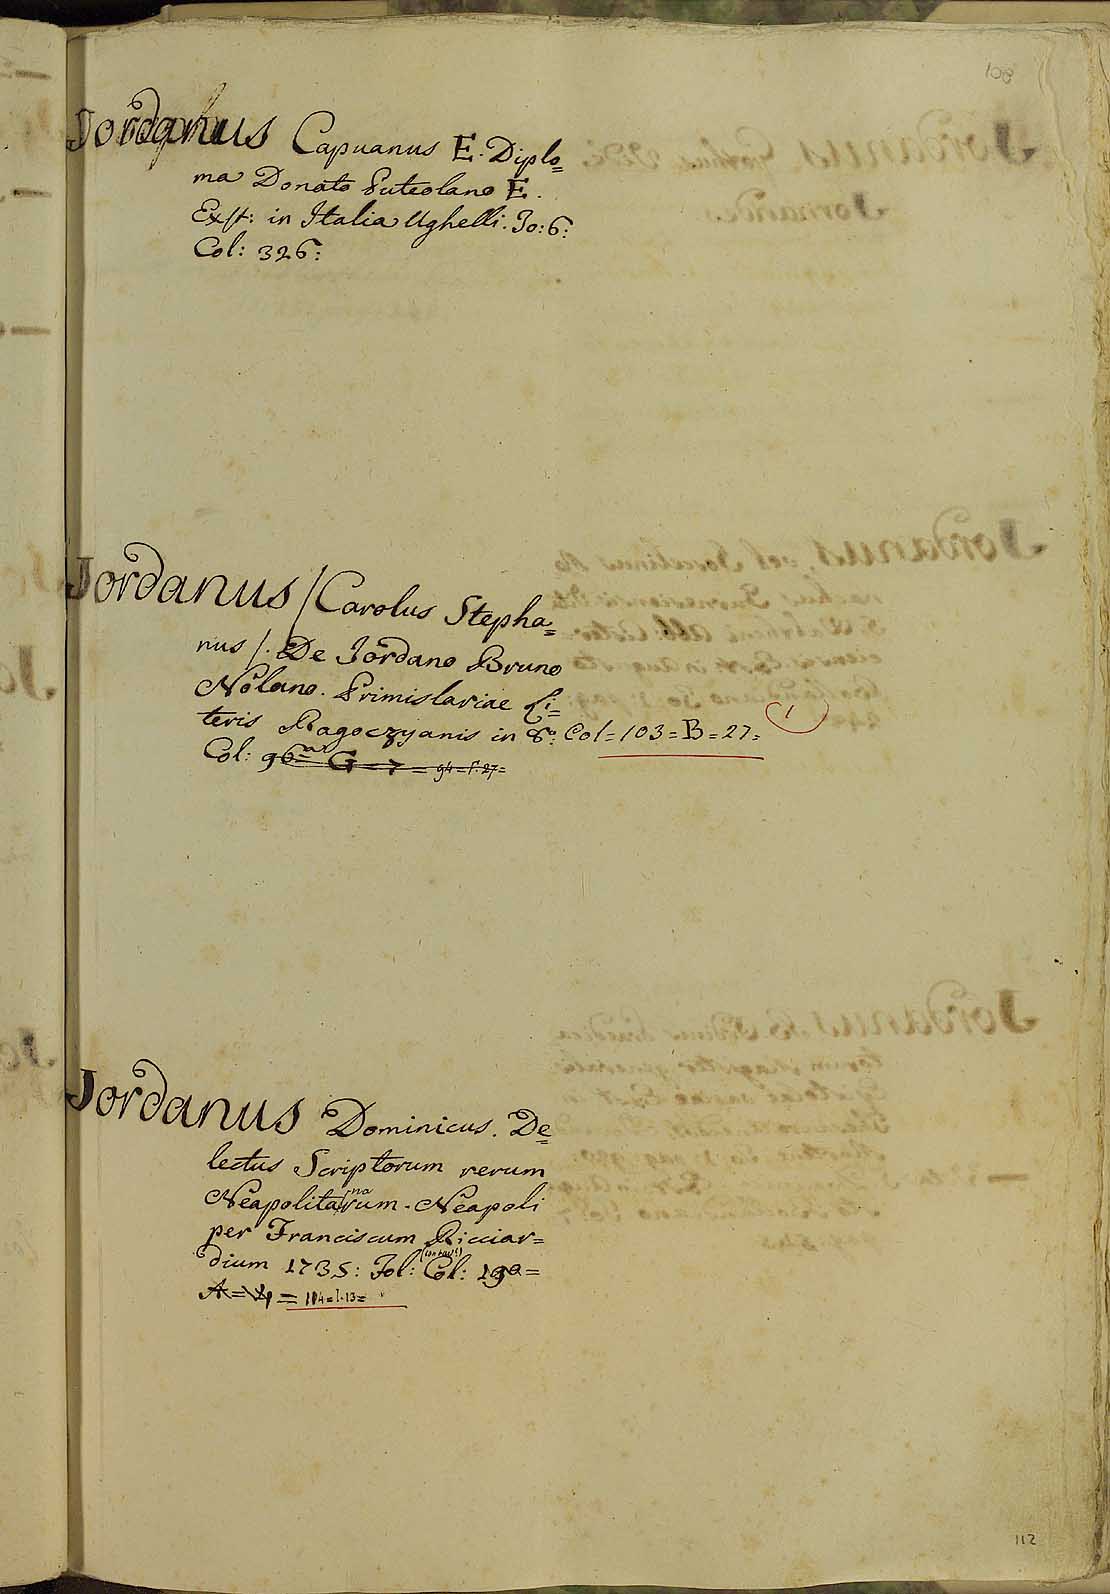 108
Jordanus Capuanus E. Diplo=
ma Donato Puteolano E.
Exst: in Italia Ughelli. To: 6:
Col: 326:
Jordanus /Carolus Stepha=
nus /. De Jordano Bruno
Nolano. Primislaviae Li=
teris Ragoczyanis in 8º: Col=103=B=27=
1
Col: 96= G=7= 94=F.27=
Jordanus Dominicus. De=
lectus Scriptorum rerum
Neapolitanarum. Neapoli
per Franciscum Ricciar=
dium 1735: Fol: Col: 19a=
A= = 104=I.13=
112